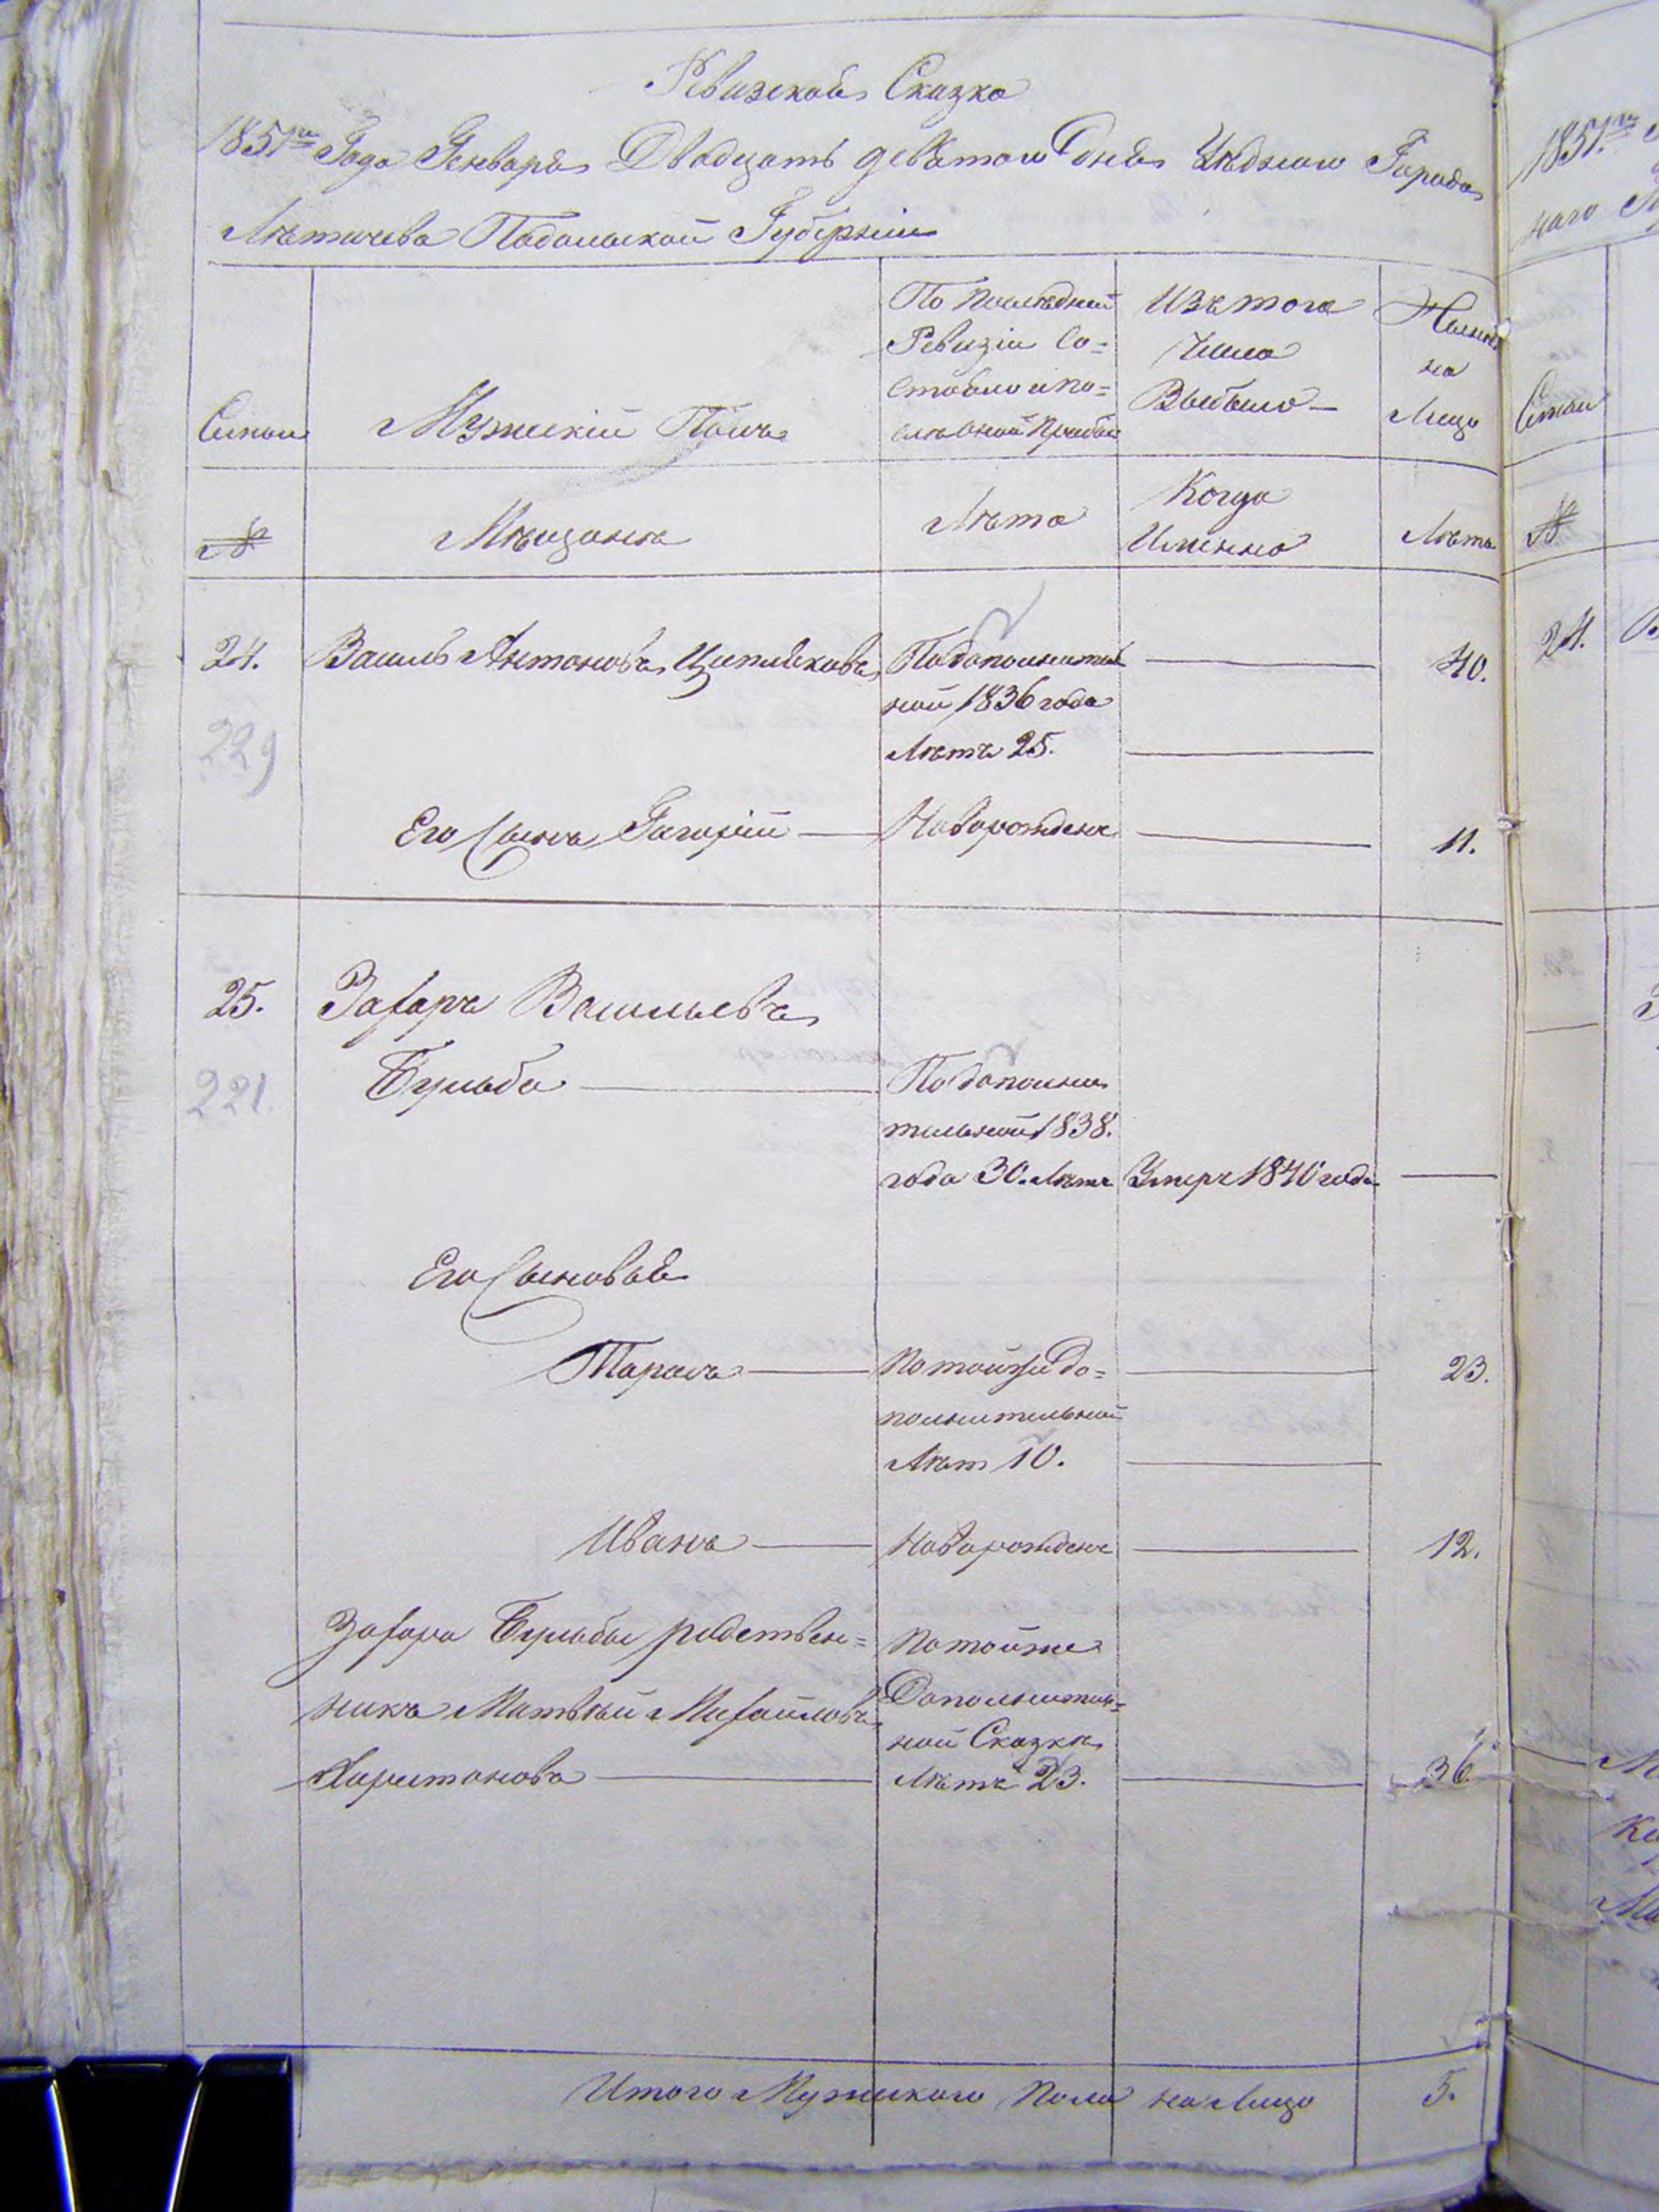 Ревизская Сказка
1851го Года Генваря Двадцать девятого Дня Уѣднаго Города
Лѣтичева Подольской Губерніи
По послѣдней Ревизіи Со=
стояло и по=
слѣ оной Прибы
Изъ того
Числа
Выбыло
Нынѣ
на
Лицо
Семьи
Мужескій Полъ
№
Мѣщанѣ
Лѣта
Когда
Именно
Лѣтъ
24.
Василь Антоновъ
Подополнитель
ной 1836 года
Лѣтъ 25.
40.
229
Его Сынъ Григорій
Новорожденъ
11.
25.
Захаръ Васильевъ
Бульба
221.
Подополни
тельной 1838.
года 30. Лѣтъ
Умеръ 1840 года
Его Сыновья
Тарасъ
Потойже до=
полнительной
Лѣт 10.
23.
Иванъ
Новорожденъ
12.
Захара Бульбы родствен=
никъ Матвѣй Михайловъ
Харитоновъ
Потойже
Дополнитель=
ной Сказкѣ
Лѣтъ 23.
36
Итого Мужескаго Пола на Лицо
5.
1851го
наго
Семьи
№
24.